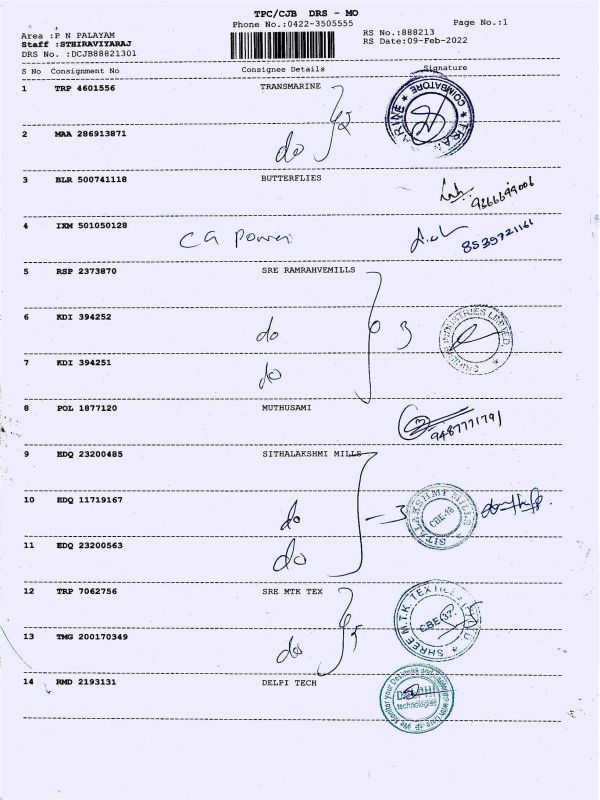 TPC/CJB DRS - MO
Phone No.:0422-3505555
Page No.:1
Area :P N PALAYAM
RS No.:888213
Staff :STHIRAVIYARAJ
RS Date:09-Feb-2022
DRS No. :DCJB88821301
S No Consignment No Consignee Details Signature
1 TRP 4601556 TRANSMARINE
COIMBATORE
2 MAA 286913871 do
3 BLR 500741118 BUTTERFLIES
9366699006
4 IXM 501050128 CG Power
8539721161
5 RSP 2373870 SRE RAMRAHVEMILLS
6 KDI 394252 do 3
INDUSTRIES LIMITED
7 KDI 394251 do
8 POL 1877120 MUTHUSAMI
9487771791
9 EDQ 23200485 SITHALAKSHMI MILLS
10 EDQ 11719167 do 3
SITALAKSHMI MILLS
CBE-18
11 EDQ 23200563 do
12 TRP 7062756 SRE MTK TEX
SHREE M.T.K. TEXTILES
CBE 37
13 TMG 200170349 do
14 RMD 2193131 DELPI TECH
technologies